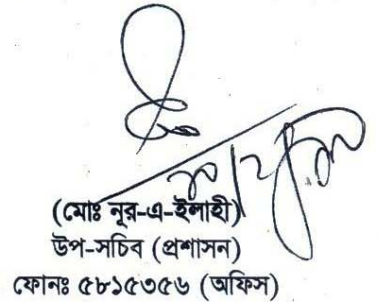 (মোঃ নূর-এ-ইলাহী)
উপ-সচিব (প্রশাসন)
ফোনঃ ৫৮১৫৩৫৬ (অফিস)